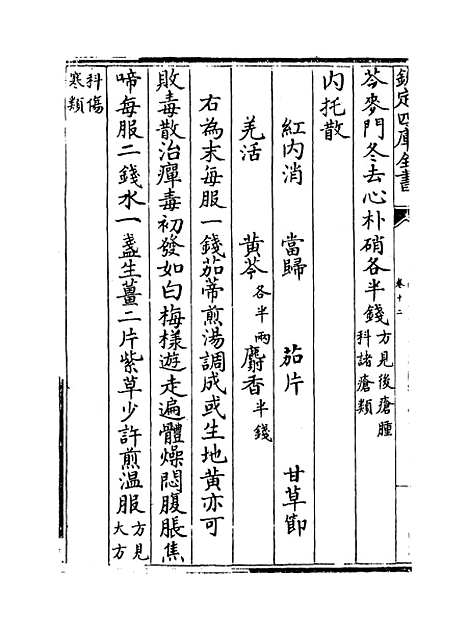 欽定四庫全書
卷十二
芩麥門冬去心朴硝各半錢方見後瘡腫科諸瘡類
内托散
紅内消 當歸 茄片 甘草節
羌活 黄芩各半兩 麝香半錢
右為末每服一錢茄蒂煎湯調成或生地黄亦可
敗毒散治癉毒初發如白梅樣遊走遍體燥悶腹脹焦
啼每服二錢水一盞生薑二片紫草少許煎温服方見大方
科傷寒類